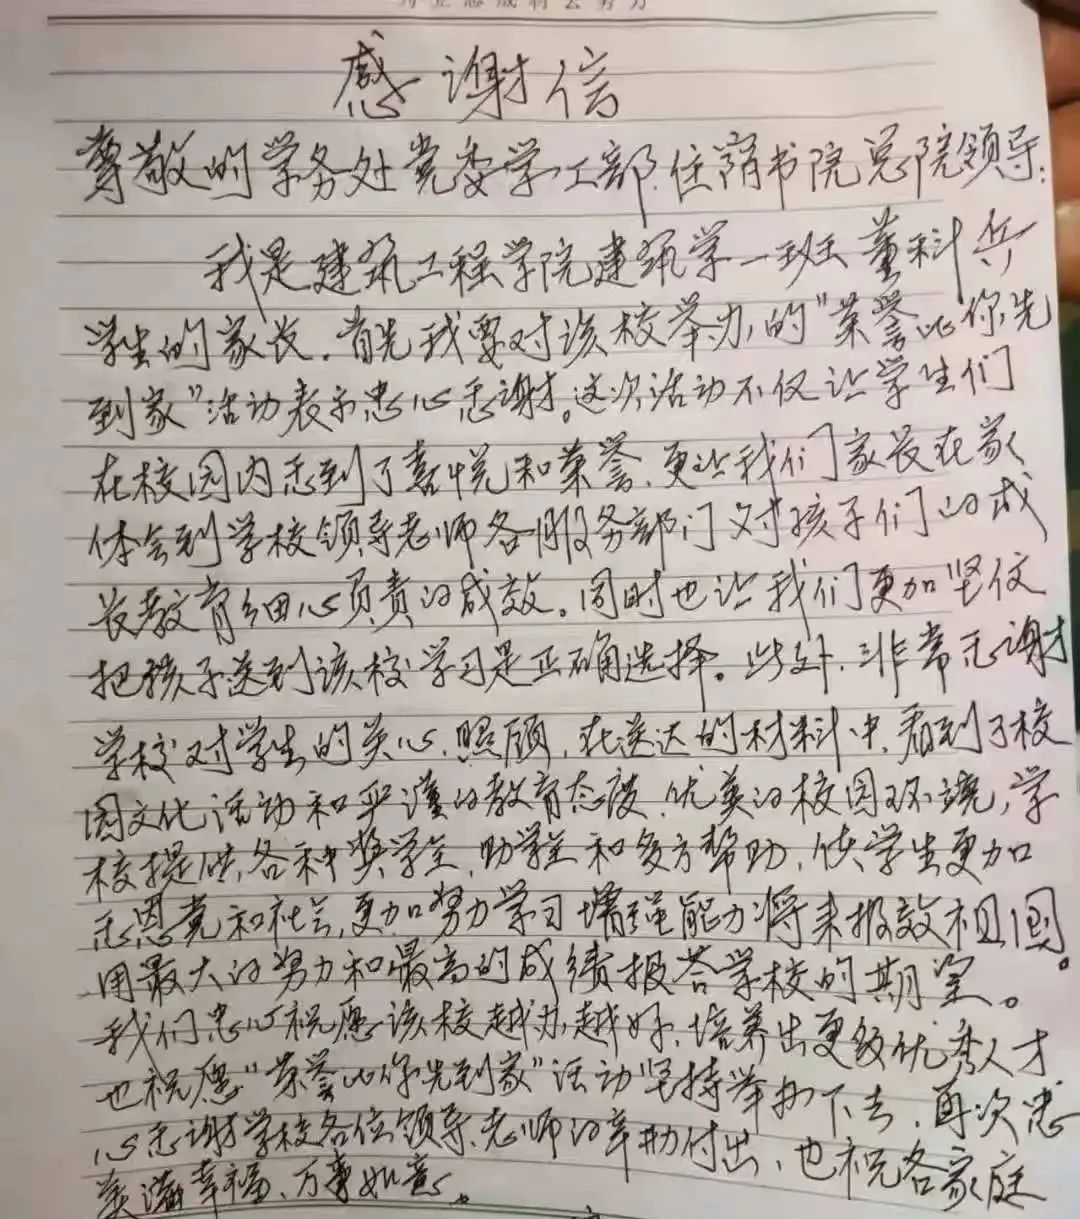 感谢信
尊敬的学务处党委学工部、住荫书院总院领导：
我是建筑工程学院建筑学一班董科兵
学生的家长。首先我要对该校举办的"荣誉比你先
到家"活动表示忠心感谢。这次活动不仅让学生们
在校园内感到了喜悦和荣誉，更让我们家长在家
体会到学校领导老师各服务部门对孩子们的成
长教育细心负责的成效。同时也让我们更加坚信
把孩子送到该校学习是正确选择。此外，非常感谢
学校对学生的关心、照顾，在送达的材料中，看到了校
园文化活动和严谨的教育态度、优美的校园环境，学
校提供各种奖学金、助学金和多方帮助，使学生更加
感恩党和社会，更加努力学习增强能力将来报效祖国。
用最大的努力和最高的成绩报答学校的期望。
我们忠心祝愿该校越办越好，培养出更多优秀人才
也祝愿"荣誉比你先到家"活动坚持举办下去，再次忠
心感谢学校各位领导、老师的辛勤付出，也祝各家庭
美满幸福、万事如意。